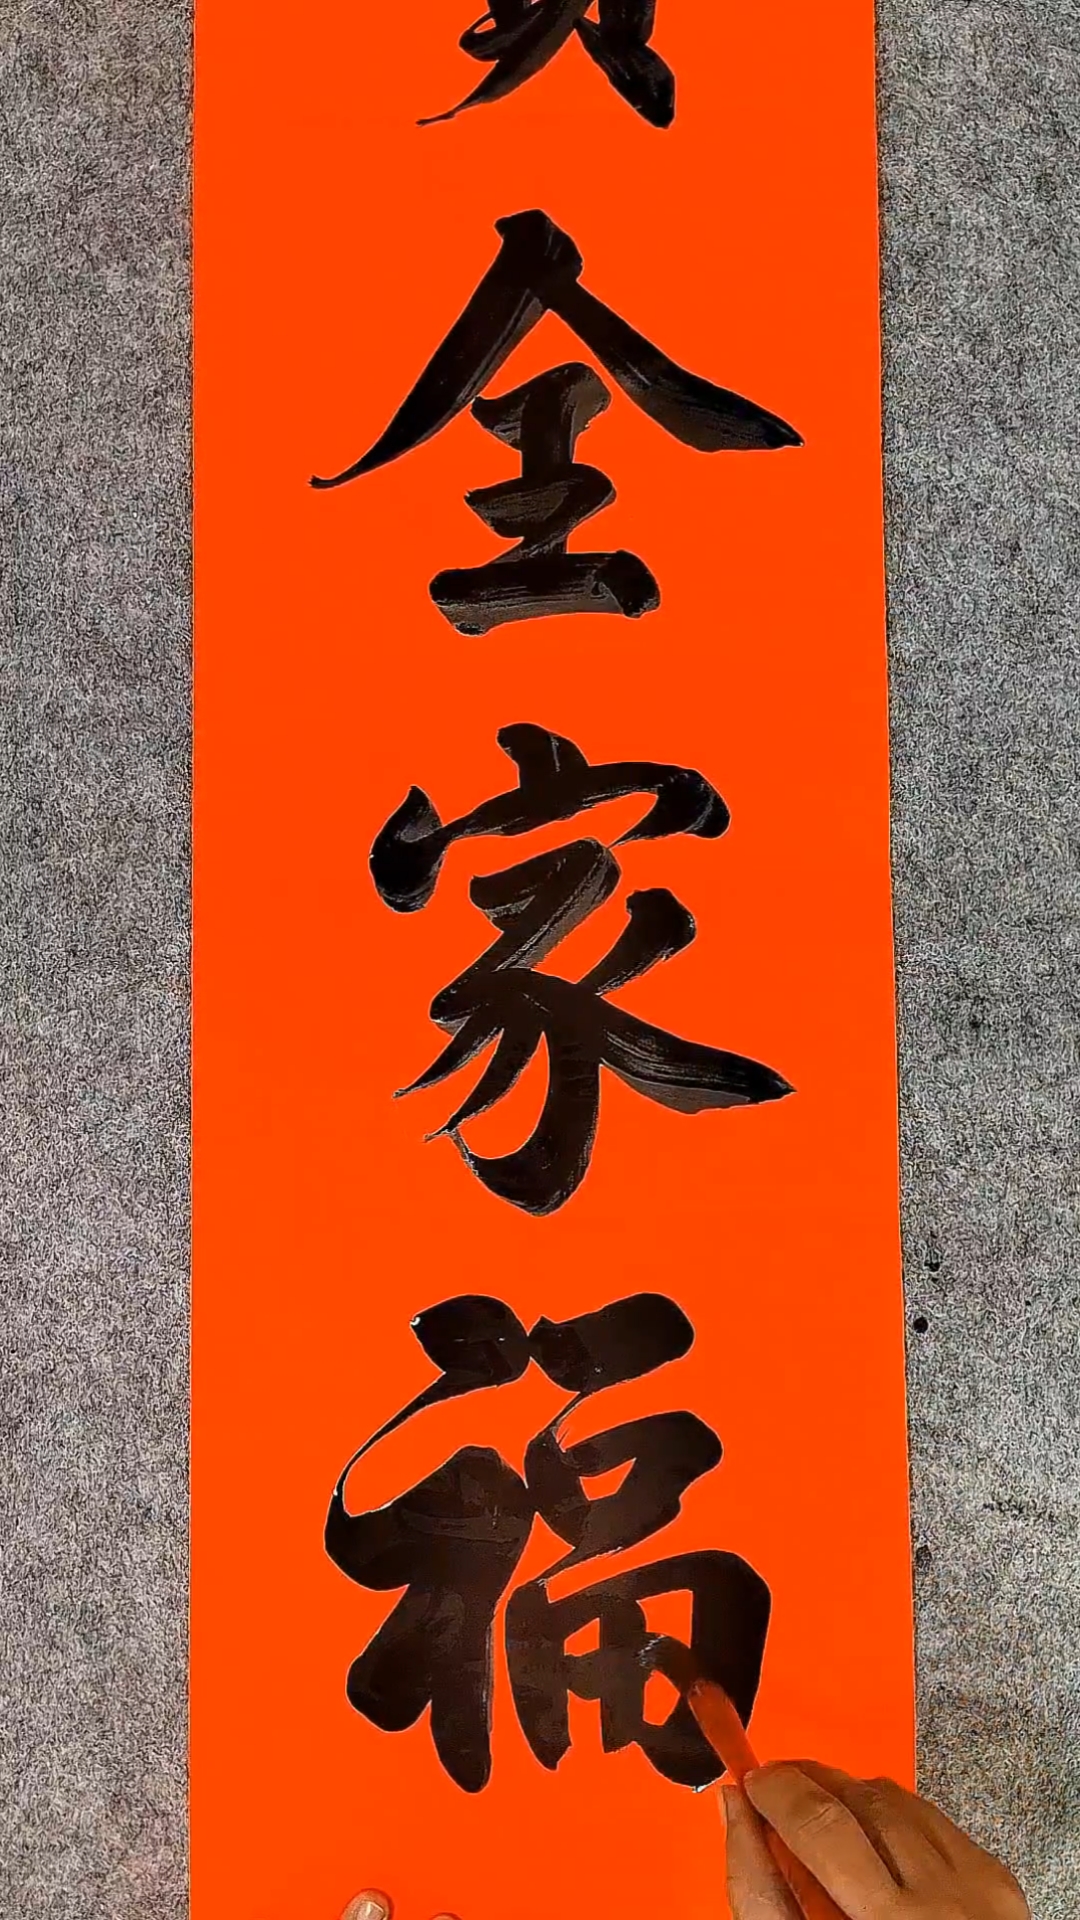 全家福